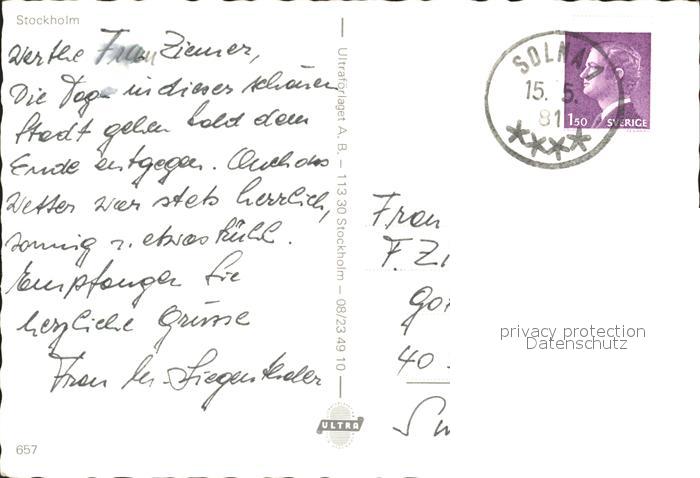 Stockholm
Werthe Frau Ziemer,
Die Tage in dieser schönen
Stadt gehen bald dem
Ende entgegen. Auch das
Wetter war stets herrlich,
sonnig u. etwas kühl.
Empfangen Sie
herzliche Grüsse
Frau
657
Ultraförlaget A. B. – 113 30 Stockholm – 08/23 49 10
ULTRA
SOLNA
15. 5.
81
1.50 SVERIGE
Frau
F. Zi
40
privacy protection
Datenschutz